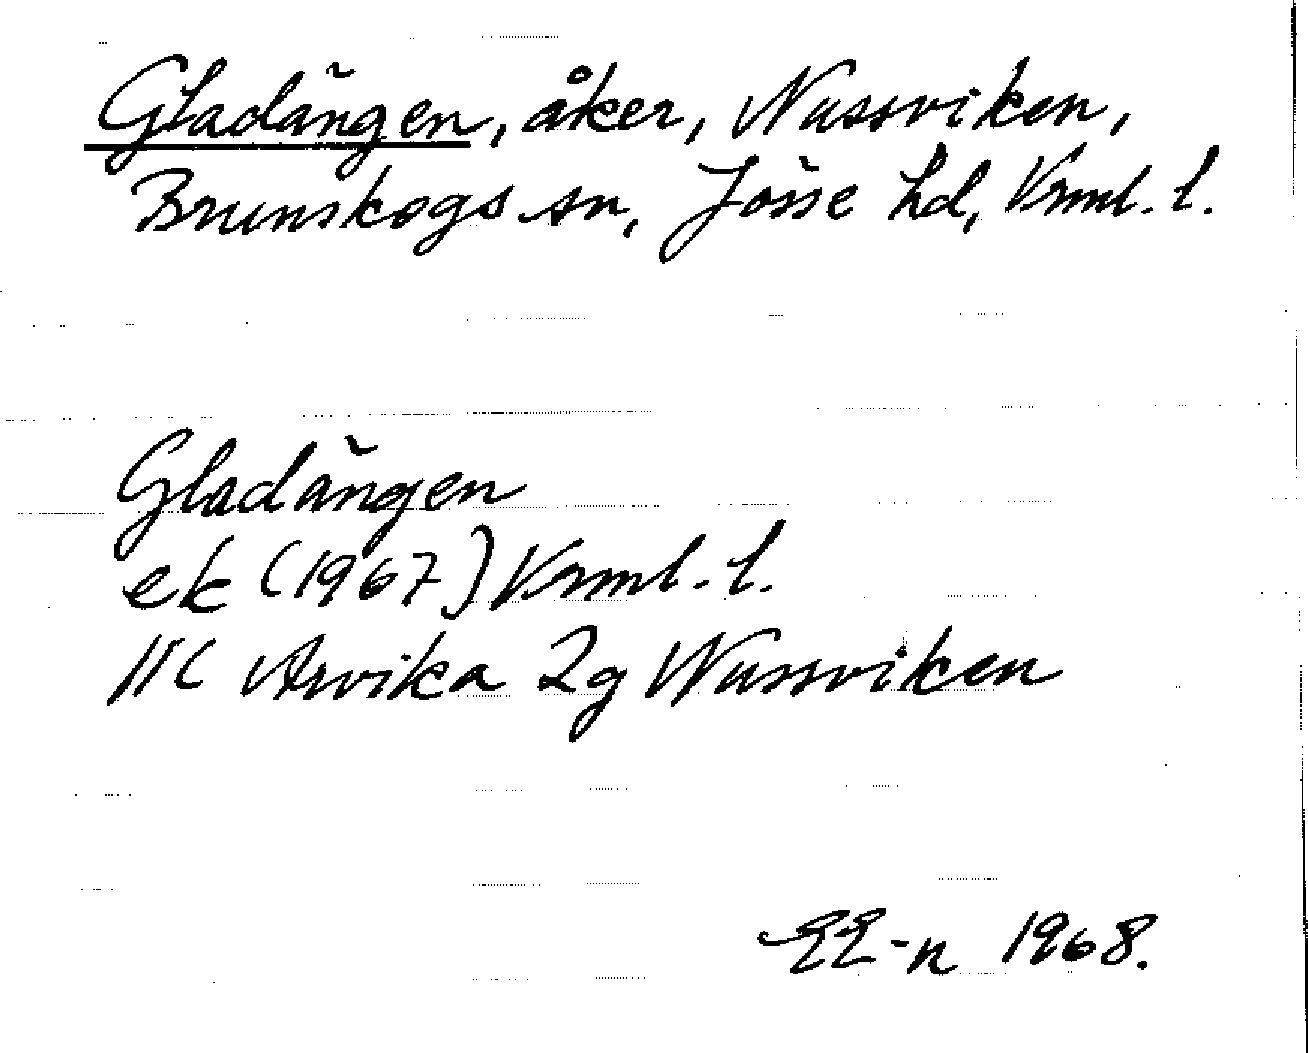 Gladängen, åker, Nussviken,
Brunskogs sn, Jösse hd, Vrml. l.
Gladängen
ek (1967) Vrml. l.
11C Arvika 2g Nussviken
EE-n 1968.